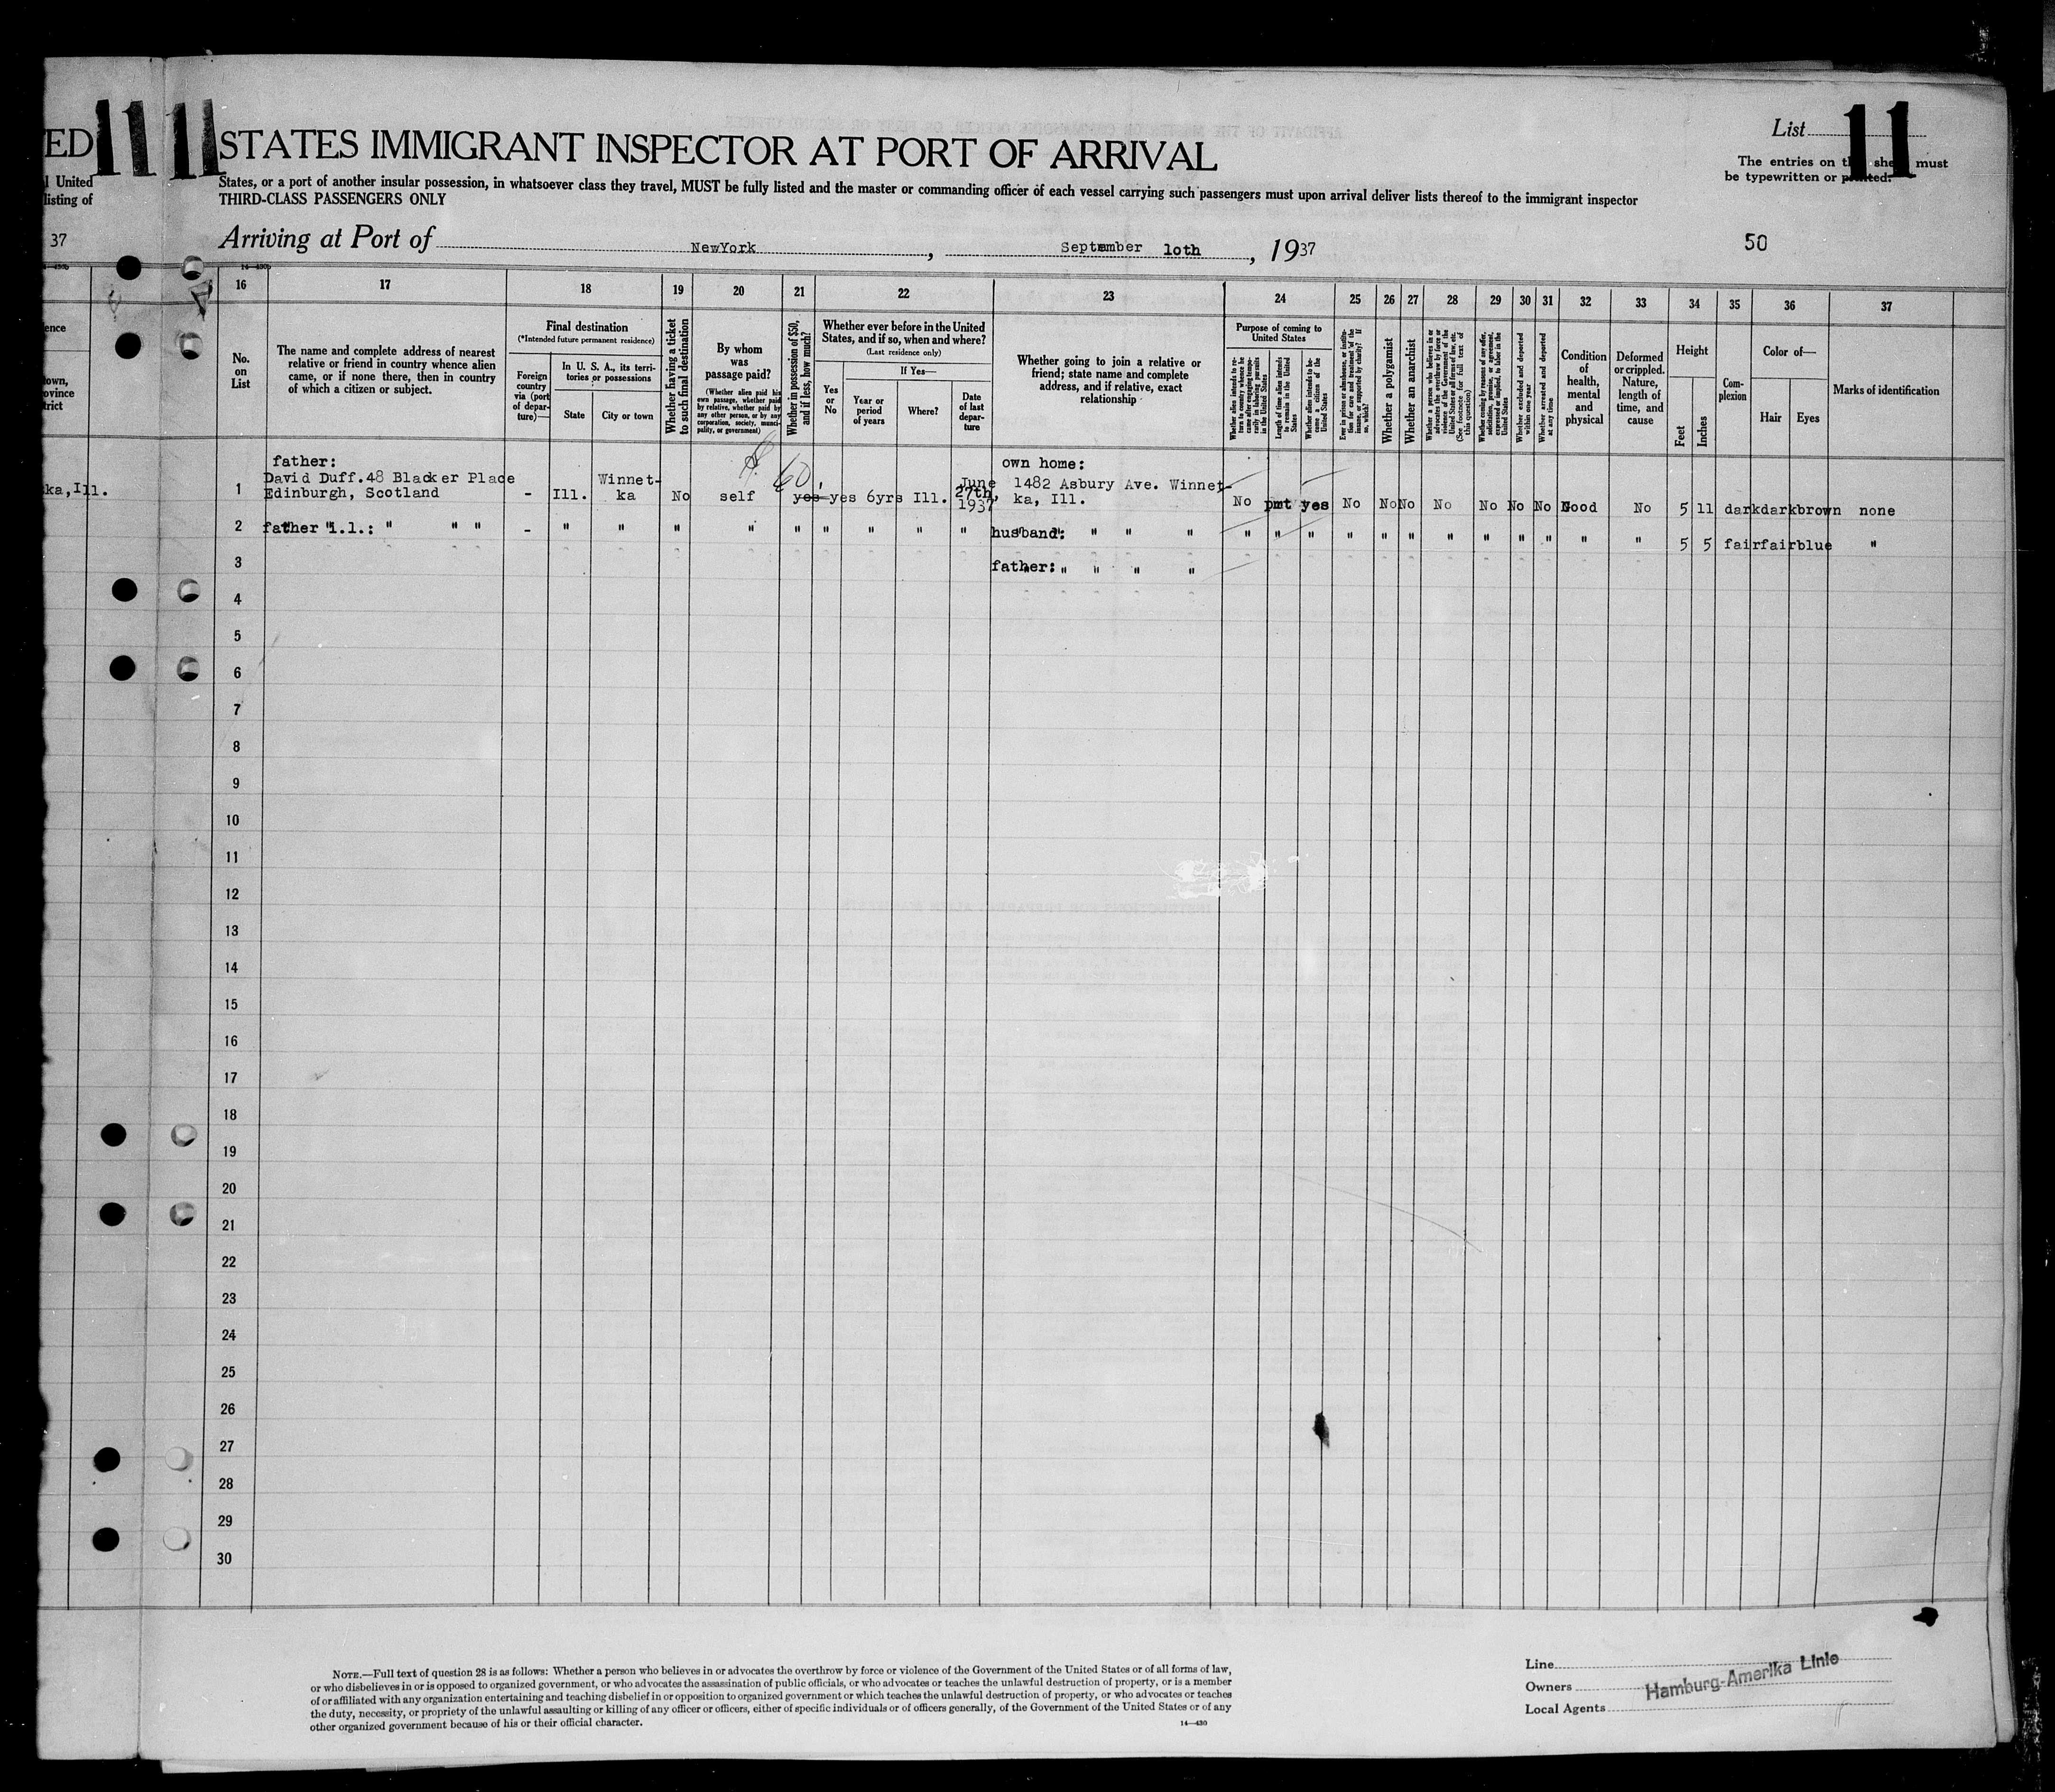 ED 11 11 STATES IMMIGRANT INSPECTOR AT PORT OF ARRIVAL
List 11
The entries on sheet must
be typewritten or printed.
l United
listing of
States, or a port of another insular possession, in whatsoever class they travel, MUST be fully listed and the master or commanding officer of each vessel carrying such passengers must upon arrival deliver lists thereof to the immigrant inspector
THIRD-CLASS PASSENGERS ONLY
37
Arriving at Port of NewYork, September 1oth, 1937
50
16 17 18 19 20 21 22 23 24 25 26 27 28 29 30 31 32 33 34 35 36 37
ence
town,
ovince
trict
No.
on
List
The name and complete address of nearest
relative or friend in country whence alien
came, or if none there, then in country
of which a citizen or subject.
Final destination
(*Intended future permanent residence)
Foreign
country
via (port
of depar-
ture)—
In U. S. A., its terri-
tories or possessions
State
City or town
Whether having a ticket
to such final destination
By whom
was
passage paid?
(Whether alien paid his
own passage, whether paid
by relative, whether paid by
any other person, or by any
corporation, society, munici-
pality, or government)
Whether in possession of $50,
and if less, how much?
Whether ever before in the United
States, and if so, when and where?
(Last residence only)
Yes
or
No
If Yes—
Year or
period
of years
Where?
Date
of last
depar-
ture
Whether going to join a relative or
friend; state name and complete
address, and if relative, exact
relationship
Purpose of coming to
United States
Whether alien intends to re-
turn to country whence he
came after engaging tempo-
rarily in laboring pursuits
in the United States
Length of time alien intends
to remain in the United
States
Whether alien intends to be-
come a citizen of the
United States
Ever in prison or almshouse, or institu-
tion for care and treatment of the
insane, or supported by charity? If
so, which?
Whether a polygamist
Whether an anarchist
Whether a person who believes in or
advocates the overthrow by force or
violence of the Government of the
United States or all forms of law, etc.
(See footnote for full text of
this question)
Whether coming by reasons of any offer,
solicitation, promise, or agreement,
expressed or implied, to labor in the
United States
Whether excluded and deported
within one year
Whether arrested and deported
at any time
Condition
of
health,
mental
and
physical
Deformed
or crippled.
Nature,
length of
time, and
cause
Height
Feet
Inches
Com-
plexion
Color of—
Hair
Eyes
Marks of identification
ka,Ill.
father:
1 David Duff.48 Blacker Place
Edinburgh, Scotland
- Ill. Winnet-
ka
No self $ 60, yes yes 6yrs Ill. June
27th,
1937
own home:
1482 Asbury Ave. Winnet-
ka, Ill.
No pmt yes No No No No No No No Good No 5 11 dark dark brown none
2 father i.l.: " " " " - " " " " " " " " " husband: " " " " " " " " " " " " " " " " 5 5 fair fair blue "
3 father: " " " "
4
5
6
7
8
9
10
11
12
13
14
15
16
17
18
19
20
21
22
23
24
25
26
27
28
29
30
NOTE.—Full text of question 28 is as follows: Whether a person who believes in or advocates the overthrow by force or violence of the Government of the United States or of all forms of law,
or who disbelieves in or is opposed to organized government, or who advocates the assassination of public officials, or who advocates or teaches the unlawful destruction of property, or is a member
of or affiliated with any organization entertaining and teaching disbelief in or opposition to organized government or which teaches the unlawful destruction of property, or who advocates or teaches
the duty, necessity, or propriety of the unlawful assaulting or killing of any officer or officers, either of specific individuals or of officers generally, of the Government of the United States or of any
other organized government because of his or their official character.
14—430
Line
Owners Hamburg-Amerika Linie
Local Agents